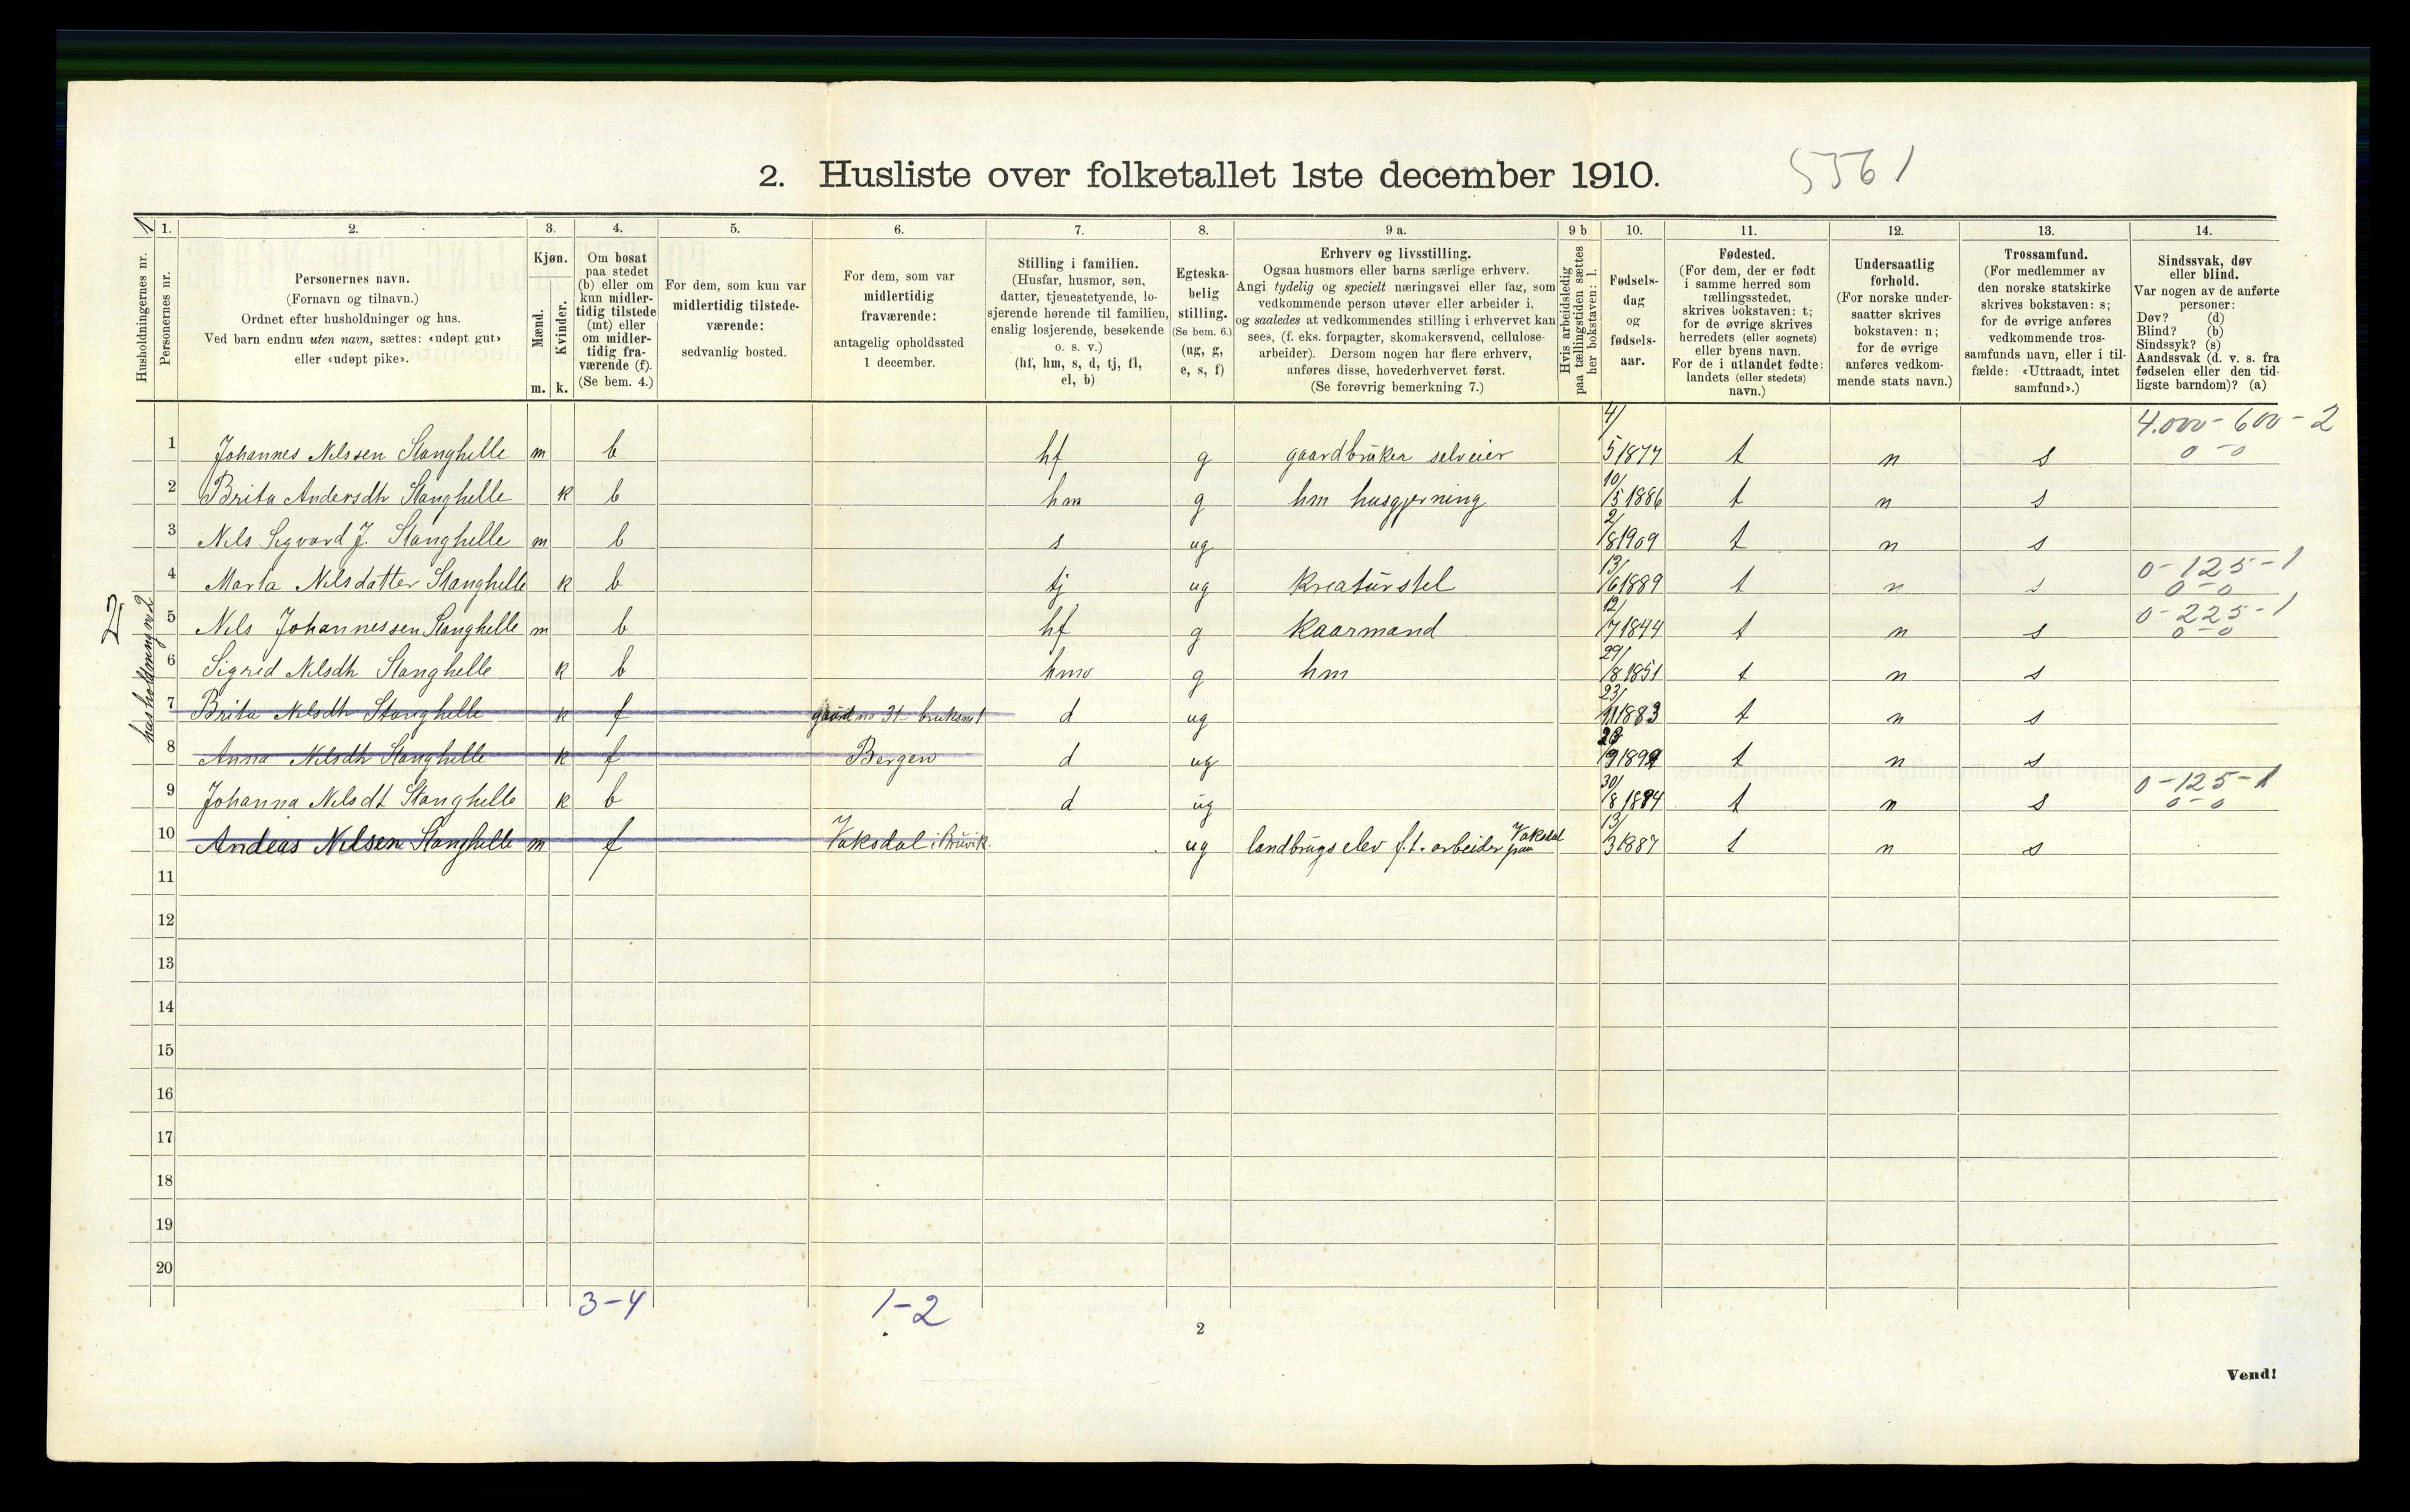 2. Husliste over folketallet 1ste december 1910.
5561
1
Husholdningernes nr.
1.
Personernes nr.
2.
Personernes navn.
(Fornavn og tilnavn.)
Ordnet efter husholdninger og hus.
Ved barn endnu uten navn, sættes: «udøpt gut»
eller «udøpt pike».
3.
Kjøn.
Mænd.
Kvinder.
m. k.
4.
Om bosat
paa stedet
(b) eller om
kun midler-
tidig tilstede
(mt) eller
om midler-
tidig fra-
værende (f).
(Se bem. 4.)
5.
For dem, som kun var
midlertidig tilstede-
værende:
sedvanlig bosted.
6.
For dem, som var
midlertidig
fraværende:
antagelig opholdssted
1 december.
7.
Stilling i familien.
(Husfar, husmor, søn,
datter, tjenestetyende, lo-
sjerende hørende til familien,
enslig losjerende, besøkende
o. s. v.)
(hf, hm, s, d, tj, fl,
el, b)
8.
Egteska-
belig
stilling.
(Se bem. 6.)
(ug, g,
e, s, f)
9 a.
Erhverv og livsstilling.
Ogsaa husmors eller barns særlige erhverv.
Angi tydelig og specielt næringsvei eller fag, som
vedkommende person utøver eller arbeider i,
og saaledes at vedkommendes stilling i erhvervet kan
sees, (f. eks. forpagter, skomakersvend, cellulose-
arbeider). Dersom nogen har flere erhverv,
anføres disse, hovederhvervet først.
(Se forøvrig bemerkning 7.)
9 b
Hvis arbeidsledig
paa tællingstiden sættes
her bokstaven: l.
10.
Fødsels-
dag
og
fødsels-
aar.
11.
Fødested.
(For dem, der er født
i samme herred som
tællingsstedet,
skrives bokstaven: t;
for de øvrige skrives
herredets (eller sognets)
eller byens navn.
For de i utlandet fødte:
landets (eller stedets)
navn.)
12.
Undersaatlig
forhold.
(For norske under-
saatter skrives
bokstaven: n;
for de øvrige
anføres vedkom-
mende stats navn.)
13.
Trossamfund.
(For medlemmer av
den norske statskirke
skrives bokstaven: s;
for de øvrige anføres
vedkommende tros-
samfunds navn, eller i til-
fælde: «Uttraadt, intet
samfund».)
14.
Sindssvak, døv
eller blind.
Var nogen av de anførte
personer:
Døv? (d)
Blind? (b)
Sindssyk? (s)
Aandssvak (d. v. s. fra
fødselen eller den tid-
ligste barndom)? (a)
1 Johannes Nilssen Stanghelle m b hf g gaardbruker selveier 4/5 1877 t n s 4.000-600-2 0-0
2 Brita Andersdtr Stanghelle k b hm g hm husgjerning 10/5 1886 t n s
3 Nils Sigvard J. Stanghelle m b s ug 2/8 1909 t n s
4 Marta Nilsdatter Stanghelle k b tj ug Kreaturstel 13/6 1889 t n s 0-125-1 0-0
2
husholdning nr 2
5 Nils Johannessen Stanghelle m b hf g Kaarmand 12/7 1844 t n s 0-225-1 0-0
6 Sigrid Nilsdtr Stanghelle k b hm g hm 29/8 1851 t n s
7 Brita Nilsdtr Stanghelle k f gaard no 31 bruksno 1 d ug 23/11 1883 t n s
8 Anna Nilsdtr Stanghelle k f Bergen d ug t n s
9 Johanna Nilsdt Stanghelle k b d ug 30/8 1894 t n s 0-125-1 0-0
10 Andeas Nilsen Stanghelle m f Vaksdal i Bruvik. ug landbrugselev f.t. arbeider paa Vaksdal 13/3 1887 t n s
11
12
13
14
15
16
17
18
19
20
3-4 1-2
2
Vend!